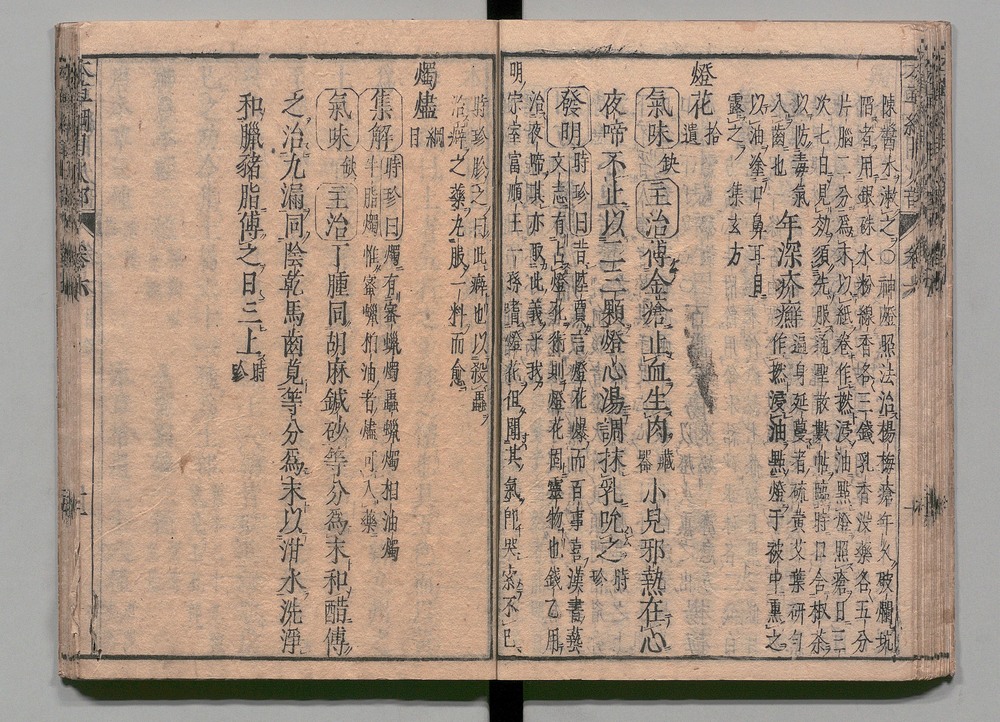 陳醬水漱之○神燈照法治楊梅瘡年久破爛坑
陷者用銀硃水粉線香各三錢乳香沒藥各五分
片腦二分爲末以紙卷作撚浸油點燈照瘡日三
次七日見効須先服通聖散數帖臨時口含椒茶
以防毒氣入齒也
年深疥癬遍身延蔓者硫黃艾葉研勻
作撚浸油點燈于被中熏之
以油塗口鼻耳目
露之 集玄方
燈花 拾遺
氣味 缺 主治 傅金瘡止血生肉 藏器 小兒邪熱在心
夜啼不止以二三顆燈心湯調抹乳吮之 時珍
發明 時珍曰昔陸賈言燈花爆而百事喜漢書藝
文志有占燈花術則燈花固靈物也錢乙用
治夜啼其亦取此義乎我
明宗室富順王一孫嗜燈花但聞其氣卽哭索不已
時珍胗之曰此癖也以殺蟲
治癖之藥丸服一料而愈
燭燼 綱目
集解 時珍曰燭有蜜蠟燭蟲蠟燭桕油燭
牛脂燭惟蜜蠟桕油者燼可入藥
氣味 缺 主治 丁腫同胡麻鍼砂等分爲末和醋傅
之治九漏同陰乾馬齒莧等分爲末以泔水洗淨
和臘豬脂傅之日三上 時珍